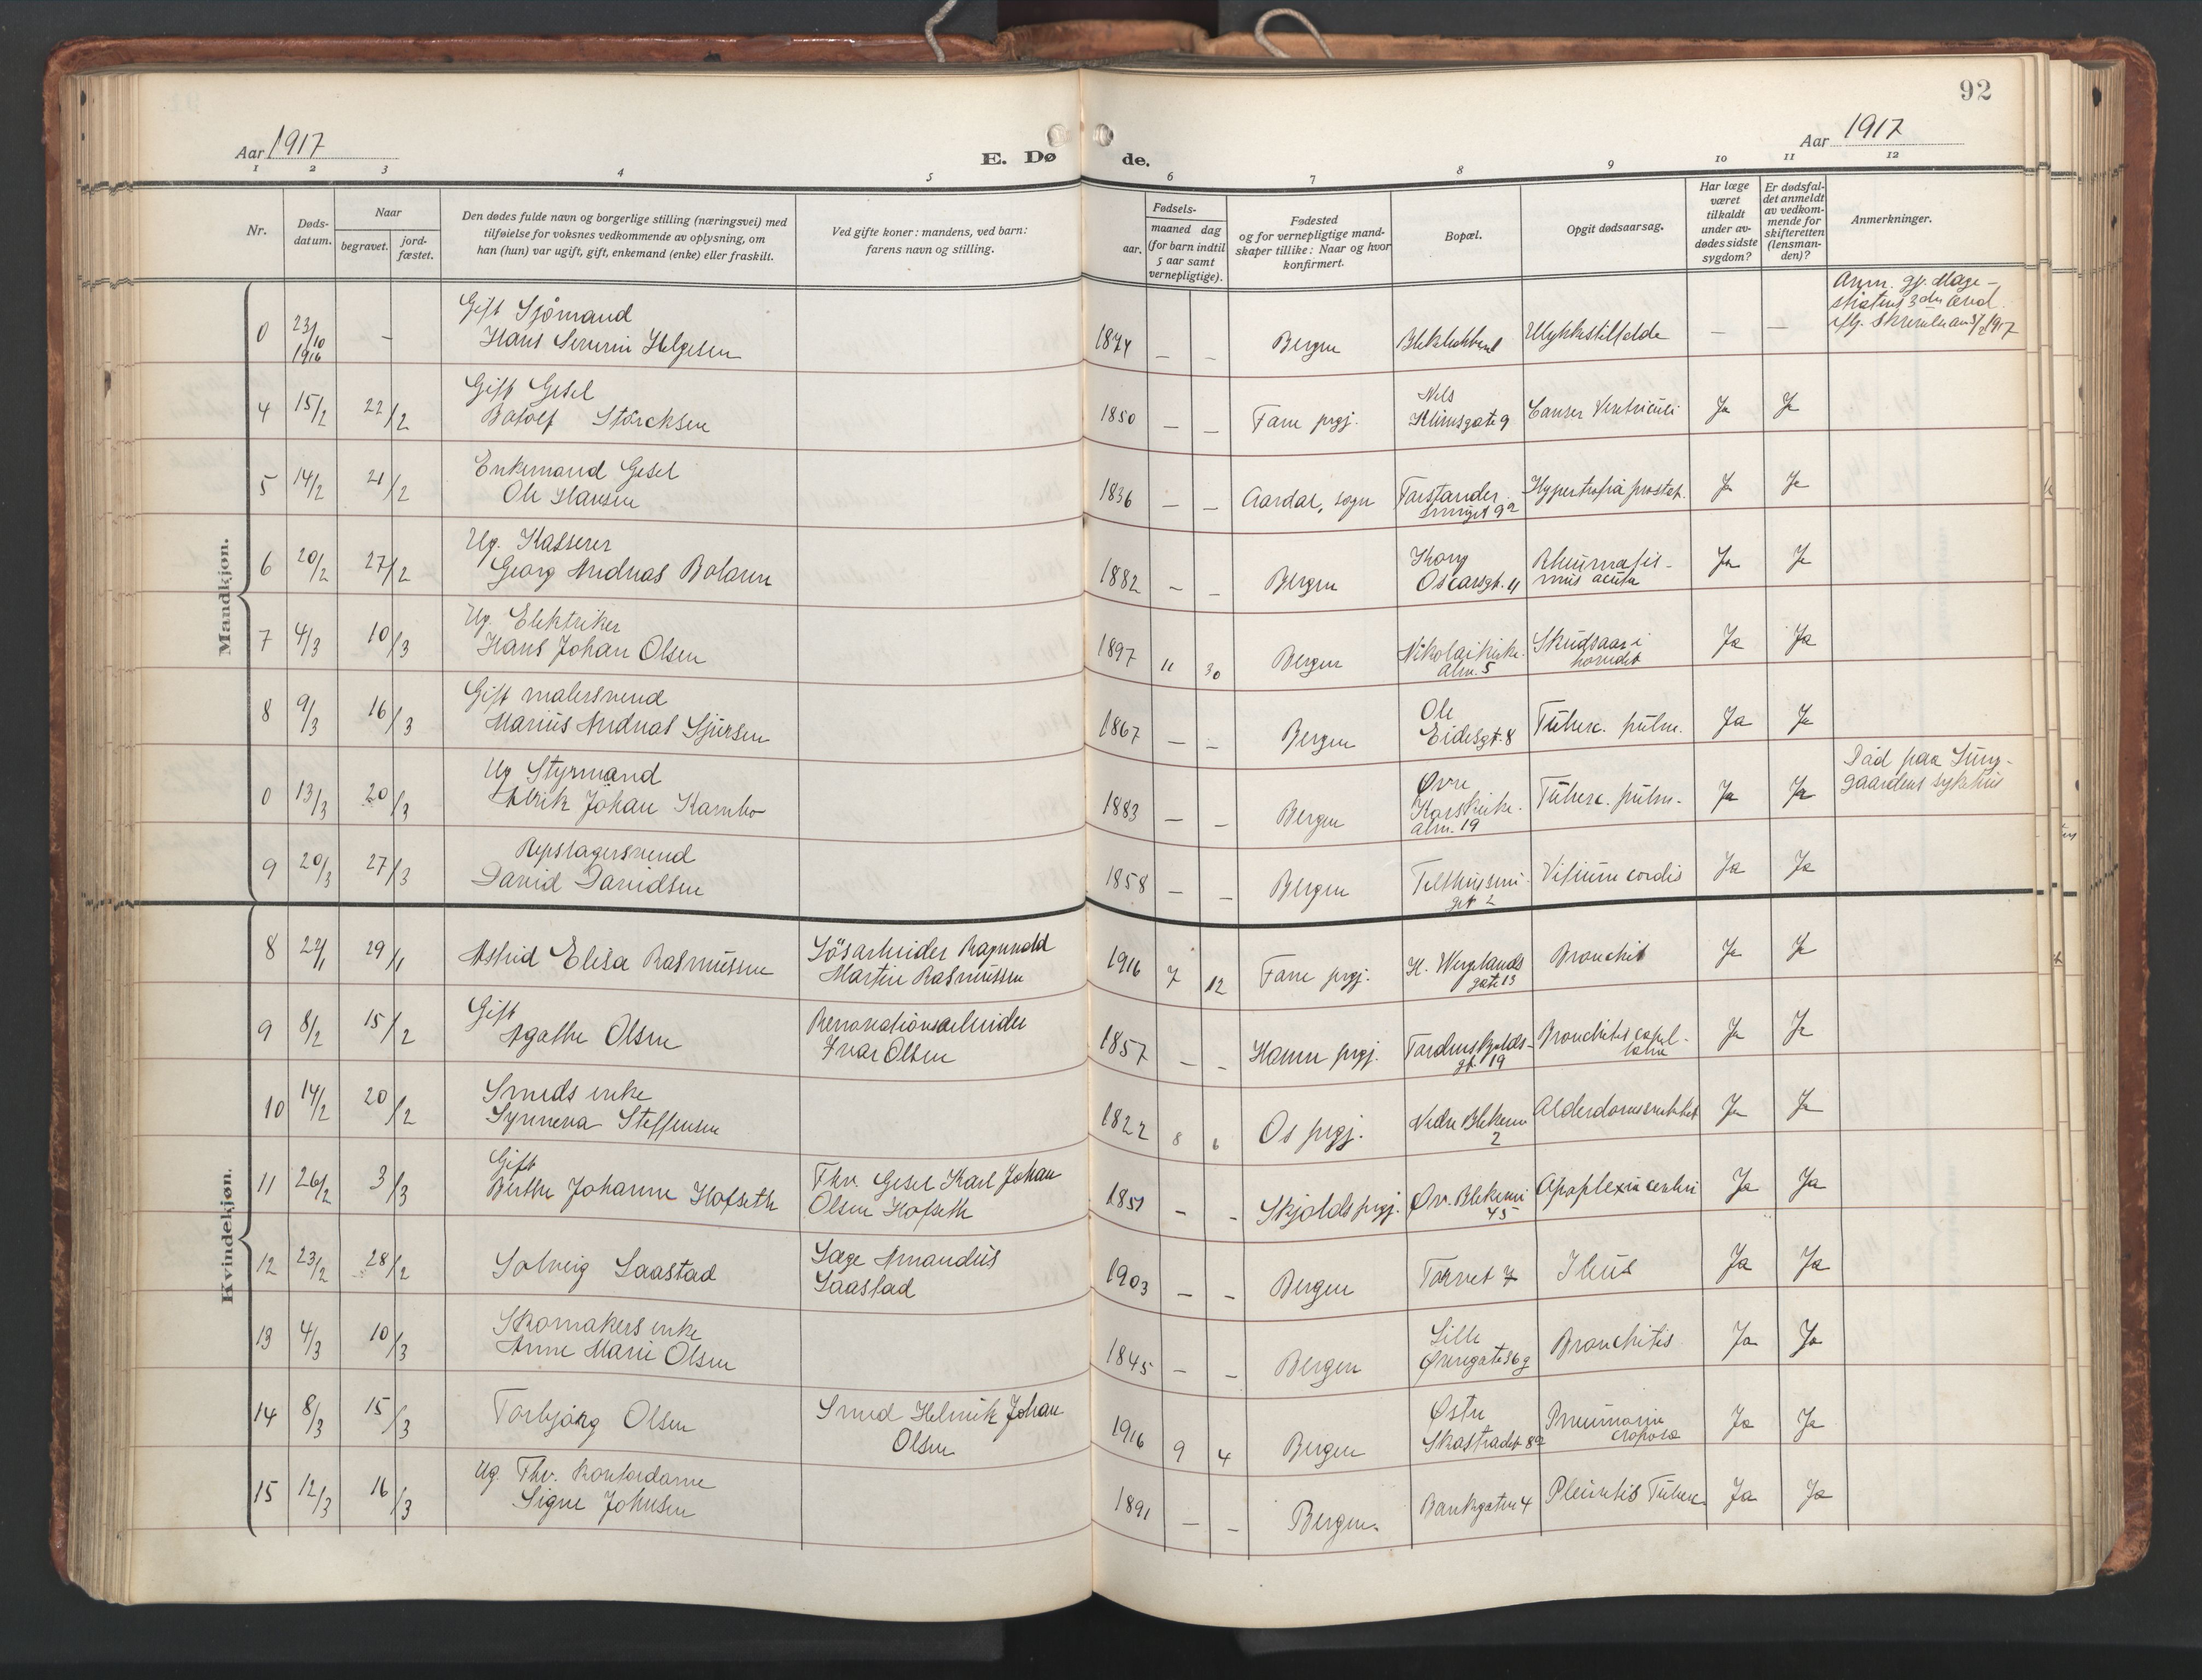 92
Aar 1917
E. Dø de.
Aar 1917
1 2 3 4 5 6 7 8 9 10 11 12
Nr.
Døds-
datum.
Naar
begravet.
jord-
fæstet.
Den dødes fulde navn og borgerlige stilling (næringsvei) med
tilføielse for voksnes vedkommende av oplysning, om
han (hun) var ugift, gift, enkemand (enke) eller fraskilt.
Ved gifte koner: mandens, ved barn:
farens navn og stilling.
Fødsels-
aar.
maaned dag
(for barn indtil
5 aar samt
vernepligtige).
Fødested
og for vernepligtige mand-
skaper tillike: Naar og hvor
konfirmert.
Bopæl.
Opgit dødsaarsag.
Har læge
været
tilkaldt
under av-
dødes sidste
sygdom?
Er dødsfal-
det anmeldt
av vedkom-
mende for
skifteretten
(lensman-
den)?
Anmerkninger.
Mandkjøn.
0 23/10 1916 –
Gift Sjömand
Hans Severin Helgesen
1874 – – Bergen Ulykkestilfelde – –
Anm. gj. Mage-
4 15/2 22/2
Gift Gesel
Botolf Störcksen
1850 – – Fane prgj.
Nels
Klimsgate 9
Cancer Ventriculi Ja Ja
5 14/2 21/2
Enkemand Gesel
Ole Hansen
1836 – – Aardal, Sogn
Hypertrofia prostat. Ja Ja
6 20/2 27/2
Ug. Kasserer
Georg Andreas Bolann
1882 – – Bergen
Kong
Oscarsgt. 11
Rheumatis-
mus acuta
Ja Ja
7 4/3 10/3
Ug. Elektriker
Hans Johan Olsen
1897 11 30 Bergen
Nikolaikirke.
alm. 5
Skudsaar i
hovedet
Ja Ja
8 9/3 16/3
Gift malersvend
Marius Andreas Sjursen
1867 – – Bergen
Ole
Eidesgt. 8
Tuberc. pulm. Ja Ja
0 13/3 20/3
Ug Styrmand
Johan Kambo
1883 – – Bergen
Øvre
Korskirke.
alm. 19
Tuberc. pulm. Ja Ja
Död paa Lung-
gaardens sykehus
9 20/3 27/3
Repslagersvend
David Davidsen
1858 – – Bergen
Vitium cordis Ja Ja
Kvindekjøn.
8 22/1 29/1 Astrid Elisa Rasmussen
Lösarbeider Ragnvald
Martin Rasmussen
1916 7 12 Fane prgj.
H. Wergelands
gate 13
Bronchit Ja Ja
9 8/2 15/2
Gift
Agathe Olsen
Renovationsarbeider
Ivar Olsen
1857 – – Hamre prgj.
Tordenskjolds-
gt. 19
Bronchites capil-
laris
Ja Ja
10 14/2 20/2
Smeds enke
Synneva Steffensen
1822 8 6 Os prgj.
Nedre Blekevei
2
Alderdomssvakhet Ja Ja
11 26/2 3/3
Gift
Berthe Johanne Hofseth
Fhv. Gesel Karl Johan
Olsen Hofseth
1851 – – Skjolds prgj.
Øv. Blekevei
45
Apoplexia cerebri Ja Ja
12 23/2 28/2 Solveig Laastad
Læge Amandus
Laastad
1903 – – Bergen Torvet 7 Ileus Ja Ja
13 4/3 10/3
Skomakers enke
Anne Marie Olsen
1845 – – Bergen
Lille
Øvregate 36 g
Bronchitis Ja Ja
14 8/3 15/3 Torbjörg Olsen
Smed Helmik Johan
Olsen
1916 9 4 Bergen
Østre
Skostrædet 8a
Pneumonia
croposa
Ja Ja
15 12/3 16/3
Ug. Fhv. Kontordame
Signe Johnsen
1891 – – Bergen. Bankgaten 4 Pleuritis Tuberc. Ja Ja